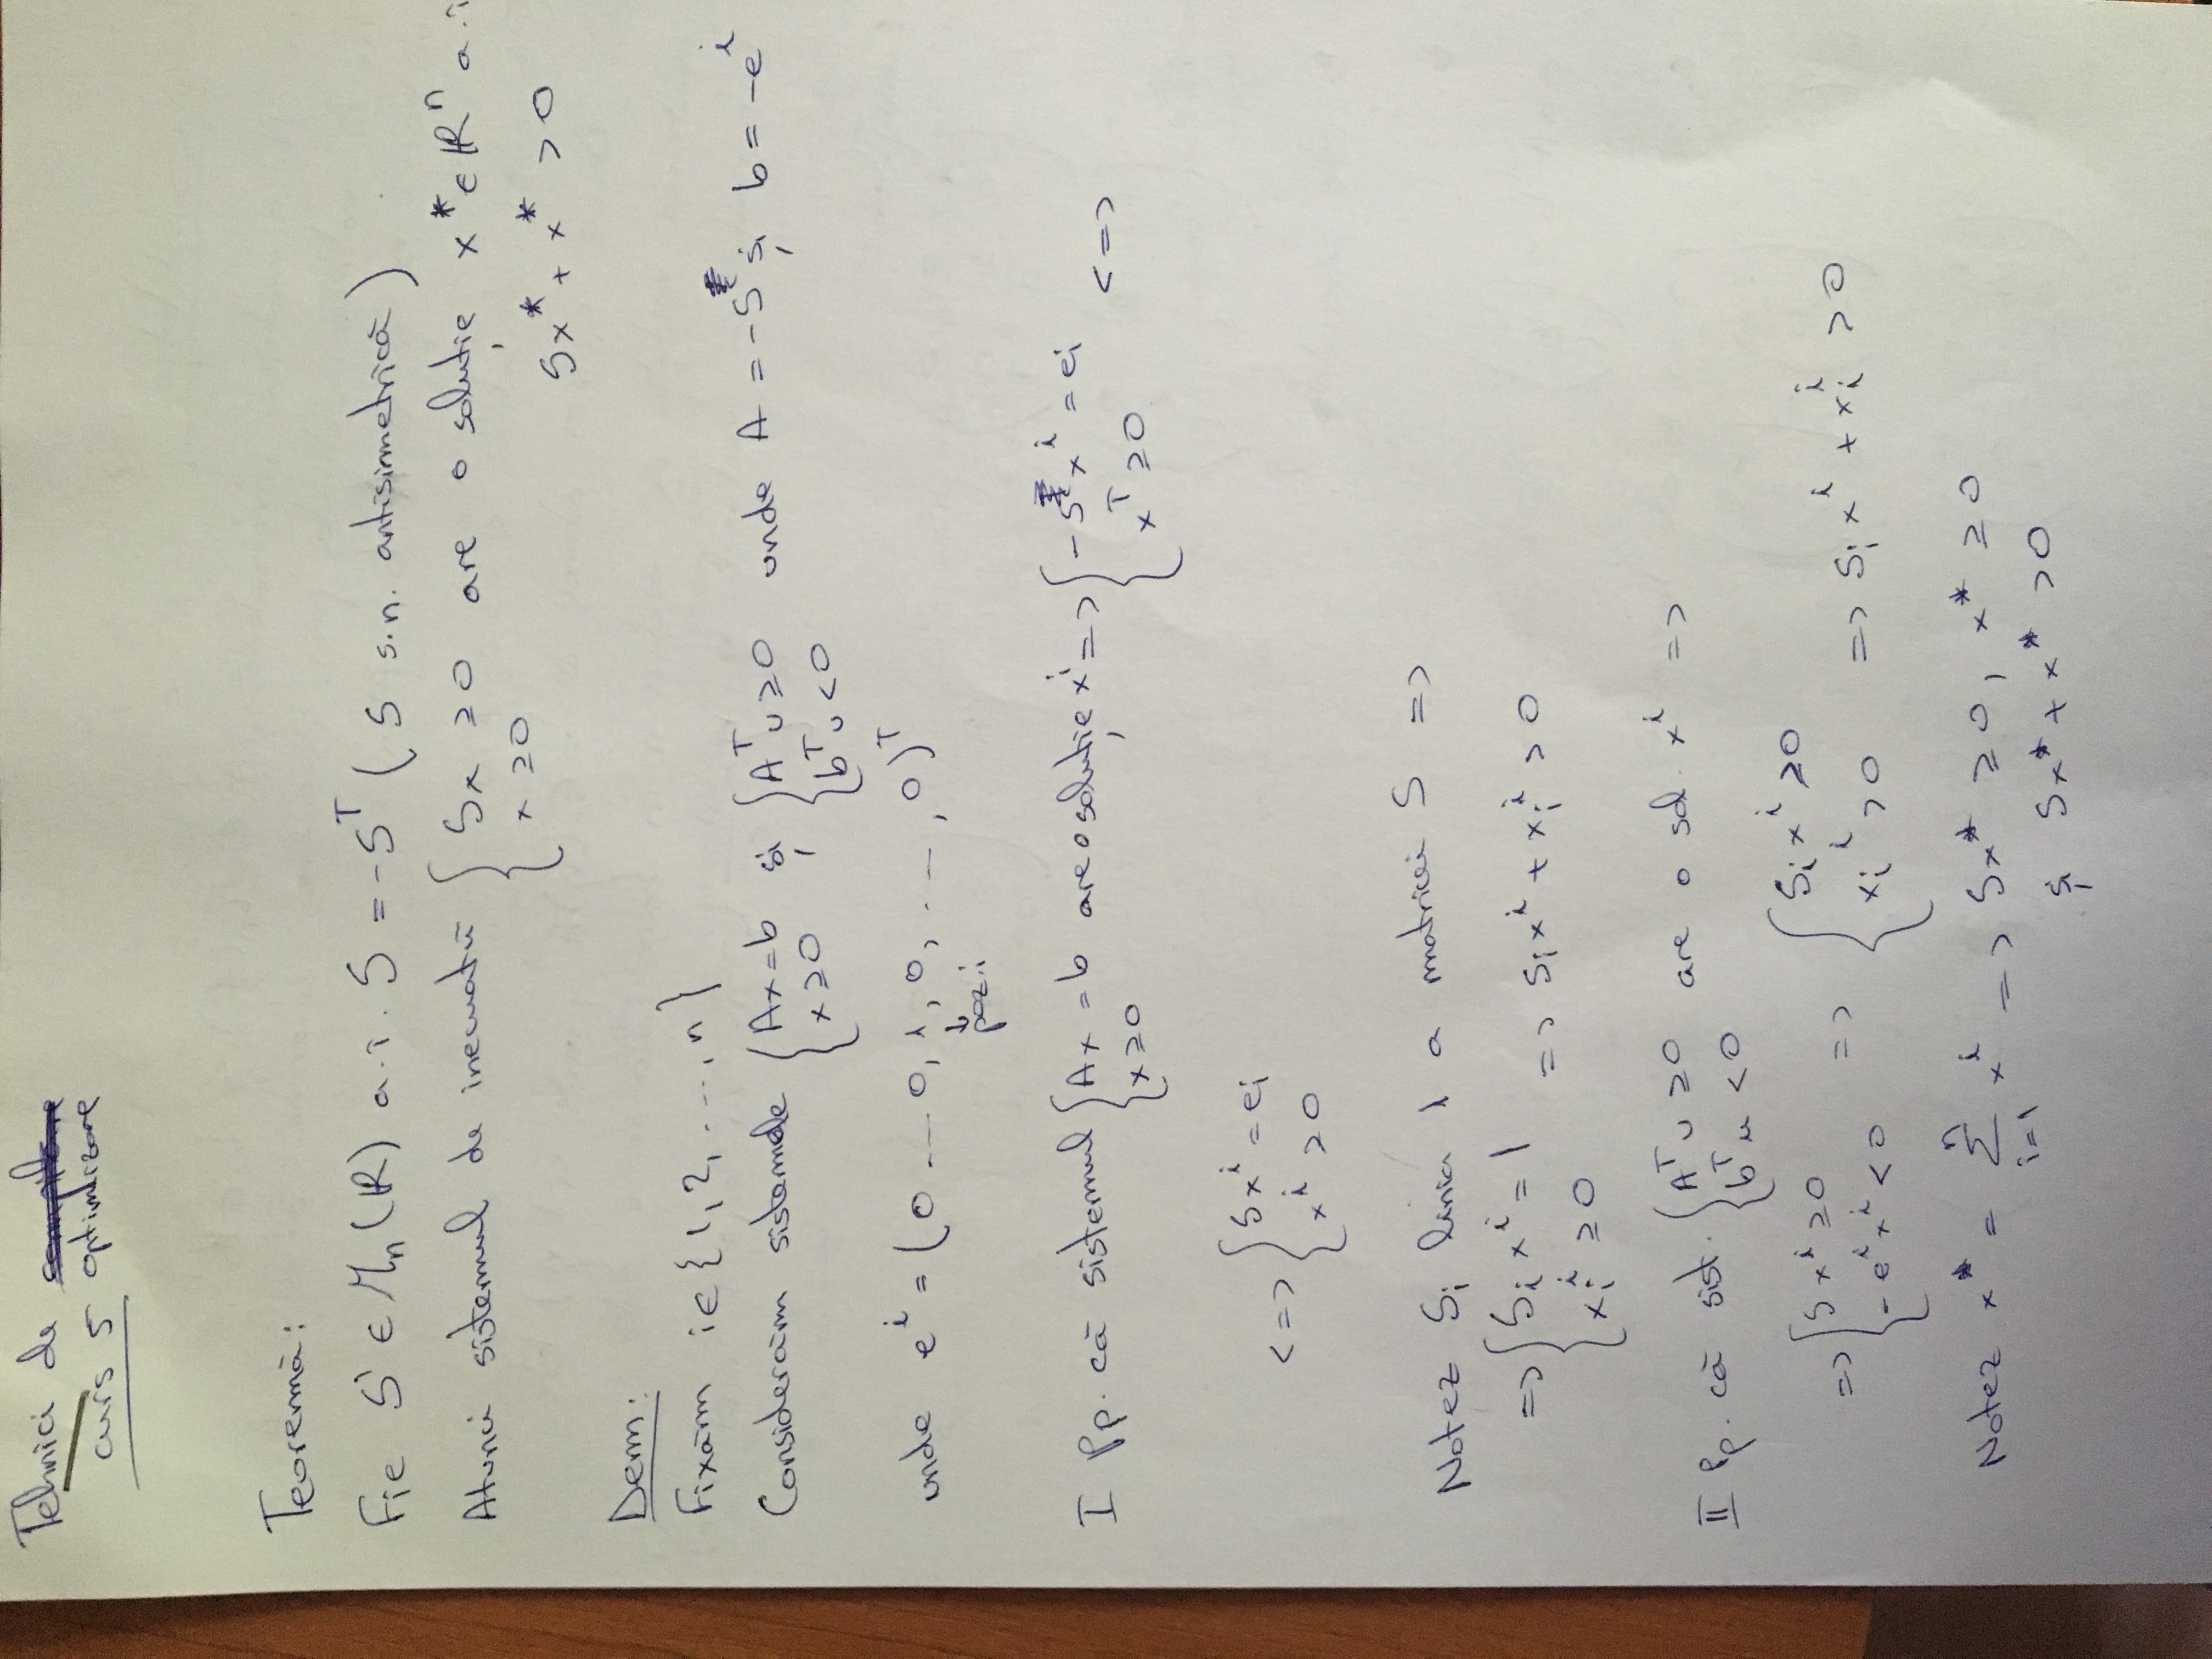 Tehnici de optimizare
curs 5
Teoremă:
Fie S ∈ Mn(R) a.î. S = -S^T (S s.n. antisimetrică)
Atunci sistemul de inecuații { Sx ≥ 0 are o soluție x* ∈ R^n a.î
x ≥ 0 Sx* + x* > 0
Dem:
Fixăm i ∈ {1, 2, ..., n}
Considerăm sistemele { Ax = b și { A^T u ≥ 0 unde A = -S și b = -e^i
x ≥ 0 b^T u < 0
unde e^i = (0 ... 0, 1, 0, ..., 0)^T
↓
poz i
I Pp. că sistemul { Ax = b are o soluție x^i => { -Sx^i = ei <=>
x ≥ 0 x^T ≥ 0
<=> { Sx^i = ei
x^i ≥ 0
Notez Si linia i a matricii S =>
=> { Si x^i = 1 => Si x^i + xi^i > 0
xi^i ≥ 0
II Pp. că sist. { A^T u ≥ 0 are o sol. x^i =>
b^T u < 0
=> { Sx^i ≥ 0 => { Si x^i ≥ 0 => Si x^i + xi^i > 0
-e^i x^i < 0 xi^i > 0
Notez x* = Σ x^i => Sx* ≥ 0, x* ≥ 0
i=1 și Sx* + x* > 0